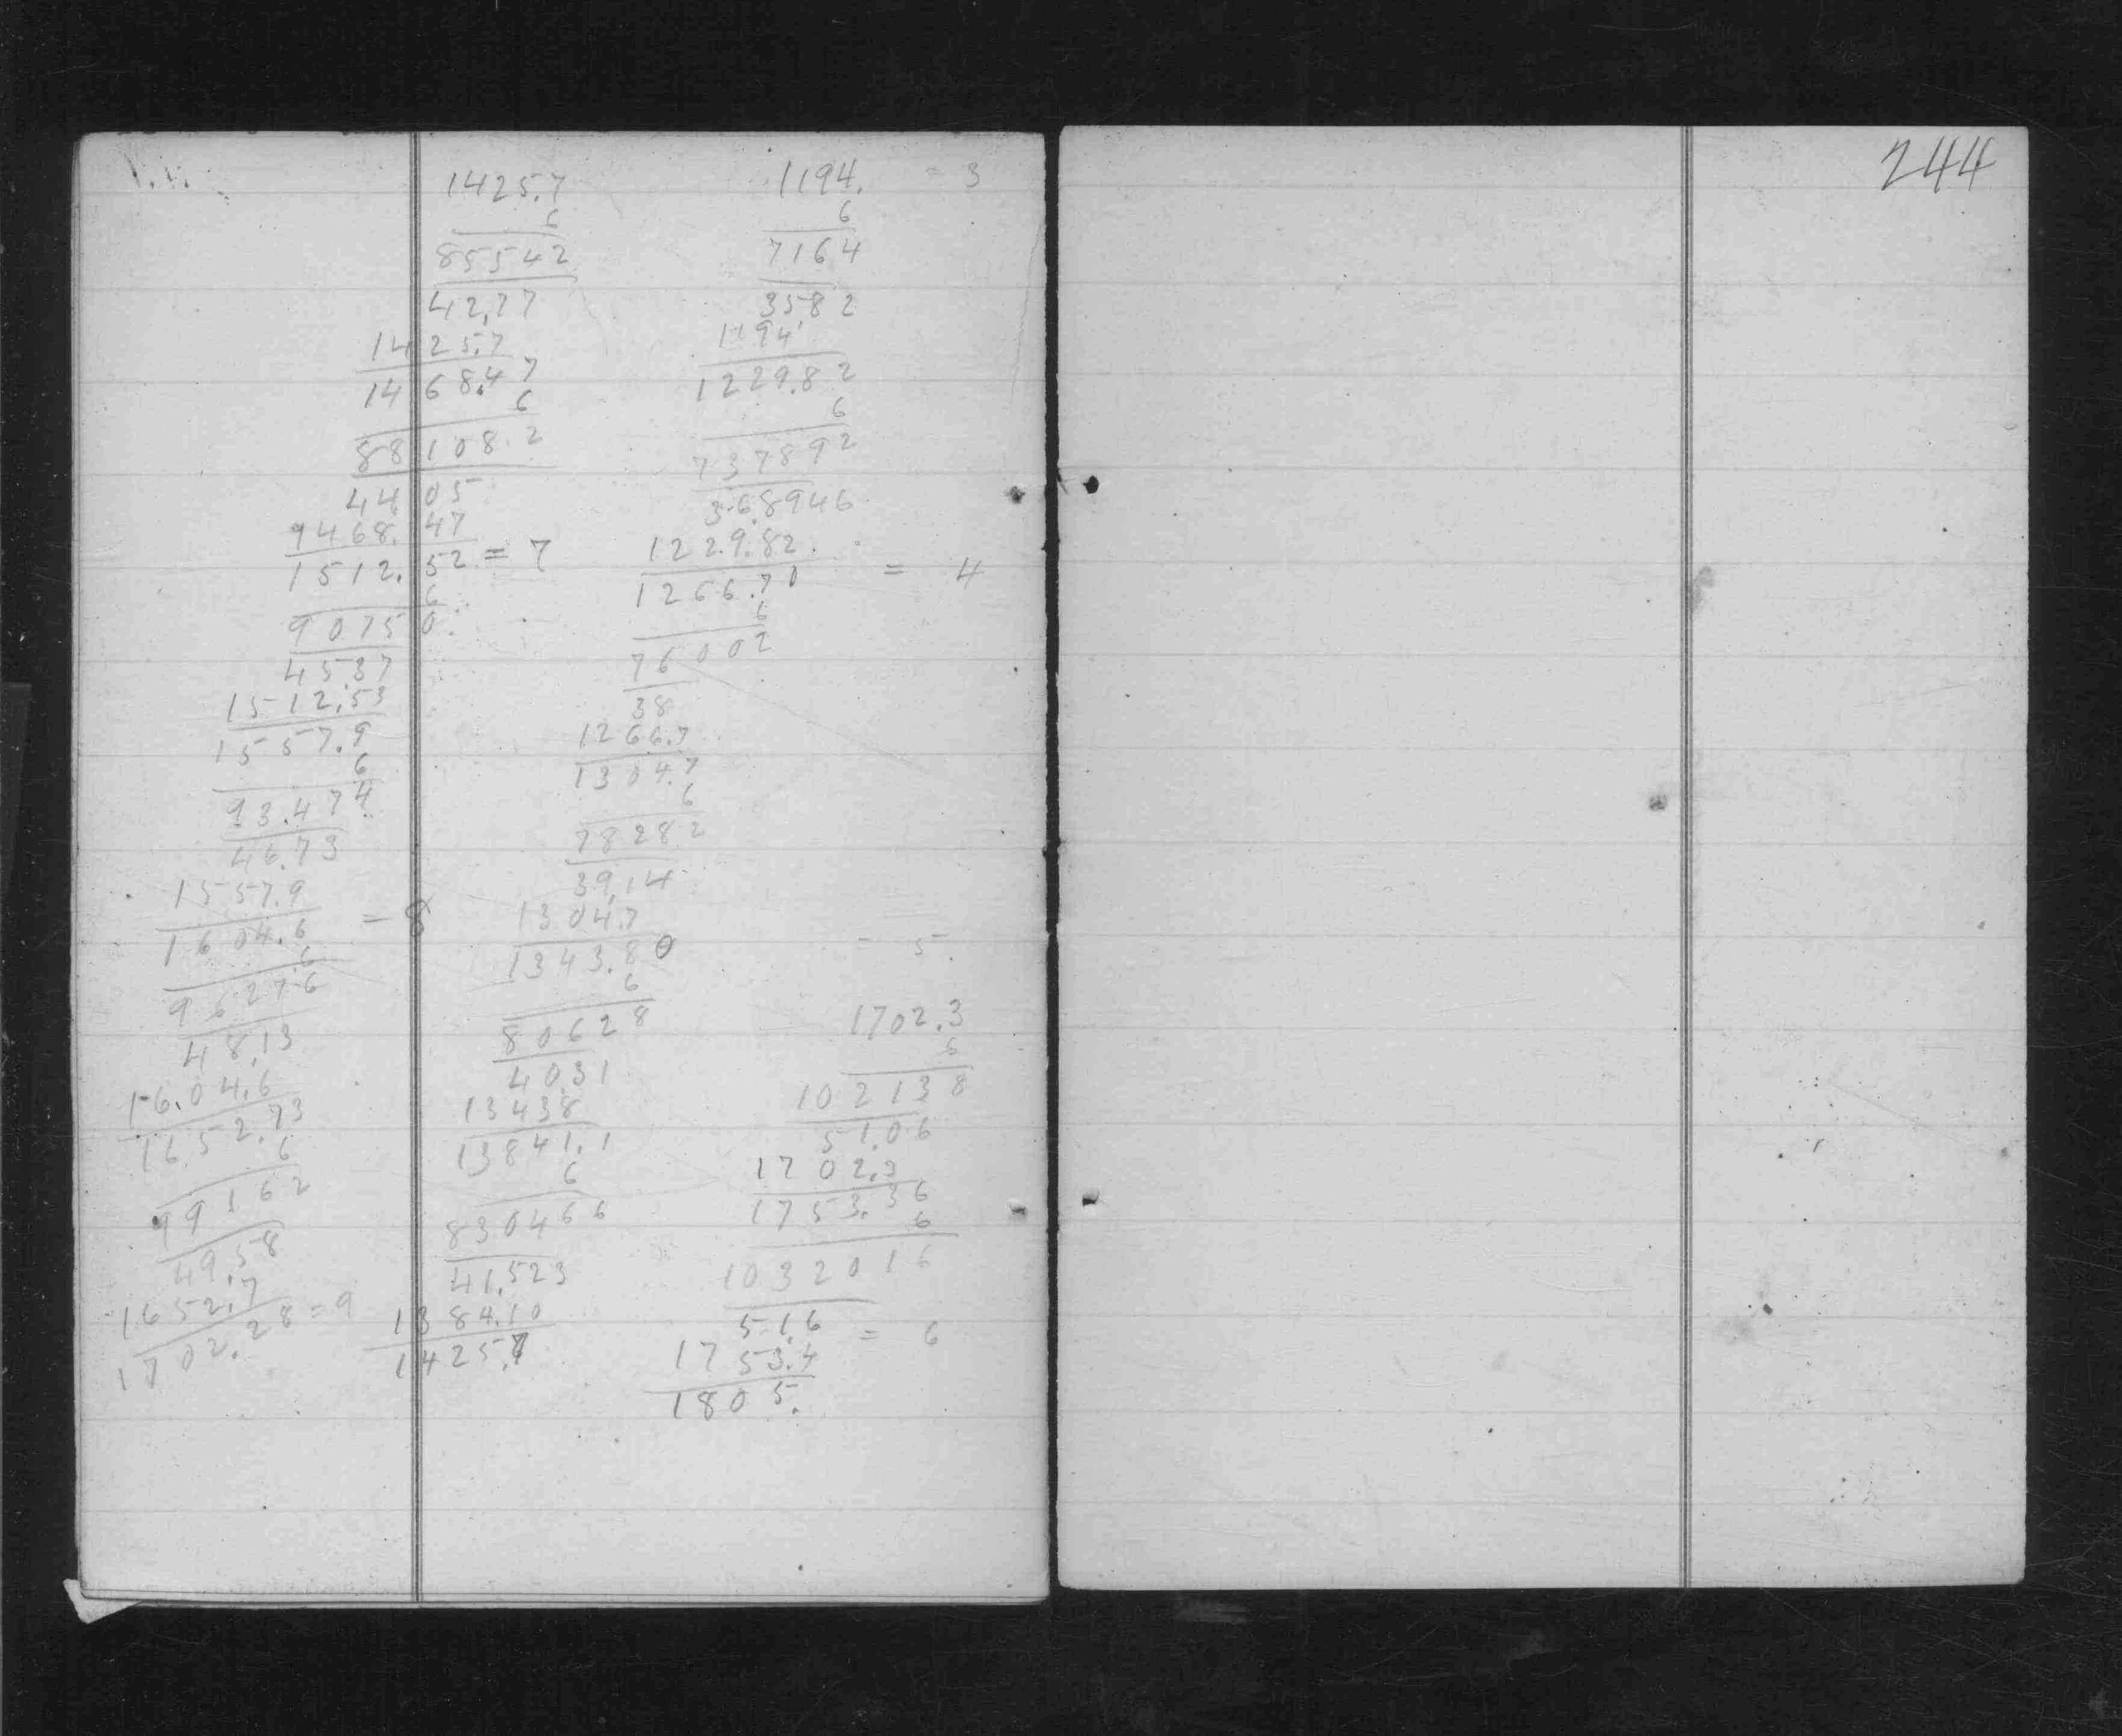 1194. = 3
6
7164
35.82
1194
1229.82
6
737892
36.8946
1229.82
1266.70 = 4
6
76002
38
1266.7
1304.7
6
78282
39.14
1304.7
1343.80 = 5
6
80628
40.31
1343.8
13841.1
6
830466
41.523
1384.10
1425.7 = 6
1425.7
6
85542
42.77
1425.7
1468.47
6
88108.2
44.05
9468.47
1512.52 = 7
6
90750
45.37
1512.53
1557.9
6
93.474
46.73
1557.9
1604.6 = 8
6
96276
48.13
16.04.6
1652.73
6
99162
49.58
1652.7
1702.28 = 9
1702.3
6
102138
51.06
1702.3
1753.36
6
1032016
51.6
1753.4
1805.
244